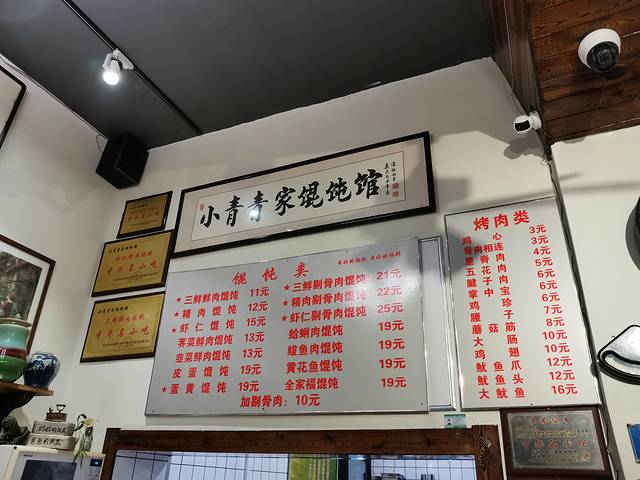 小青青家馄饨馆
中华名小吃
中华名小吃
馄饨类
★三鲜鲜肉馄饨 11元
★精肉馄饨 12元
★虾仁馄饨 15元
荠菜鲜肉馄饨 13元
韭菜鲜肉馄饨 13元
皮蛋馄饨 19元
★蛋黄馄饨 19元
★三鲜剔骨肉馄饨 21元
★精肉剔骨肉馄饨 22元
★虾仁剔骨肉馄饨 25元
蛤蜊肉馄饨 19元
鲅鱼肉馄饨 19元
黄花鱼馄饨 19元
全家福馄饨 19元
加剔骨肉：10元
烤肉类
鸡心 3元
骨肉相连 3元
里脊肉 4元
五花肉 5元
6元
掌中宝 6元
鸡珍 6元
腰子 7元
8元
10元
鸡翅 10元
鱿鱼爪 12元
鱿鱼头 12元
大鱿鱼 16元